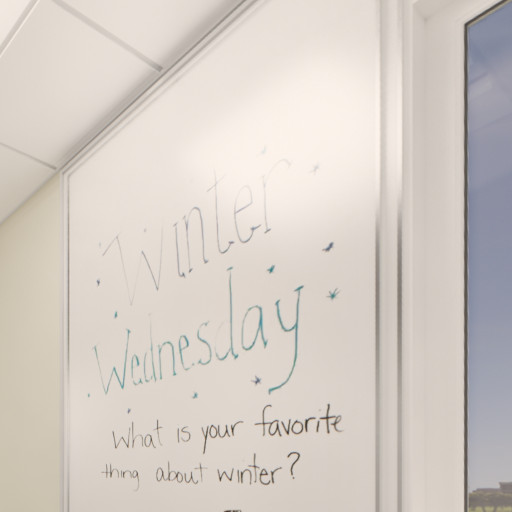 Winter
Wednesday
What is your favorite
thing about winter?